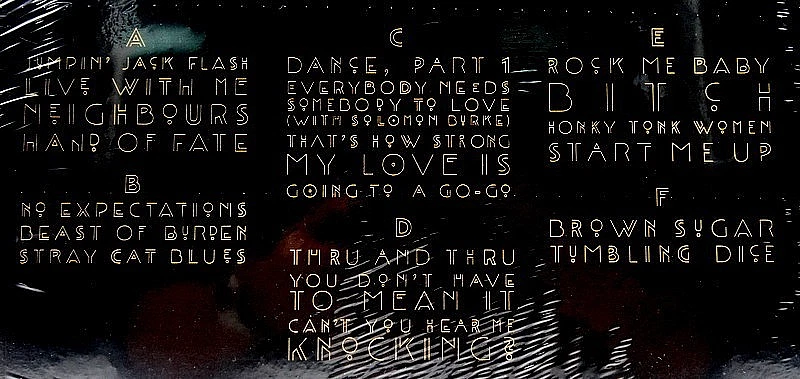 A
JUMPIN' JACK FLASH
LIVE WITH ME
NEIGHBOURS
HAND OF FATE
B
NO EXPECTATIONS
BEAST OF BURDEN
STRAY CAT BLUES
C
DANCE, PART 1
EVERYBODY NEEDS
SOMEBODY TO LOVE
(WITH SOLOMON BURKE)
THAT'S HOW STRONG
MY LOVE IS
GOING TO A GO-GO
D
THRU AND THRU
YOU DON'T HAVE
TO MEAN IT
CAN'T YOU HEAR ME
KNOCKING?
E
ROCK ME BABY
BITCH
HONKY TONK WOMEN
START ME UP
F
BROWN SUGAR
TUMBLING DICE